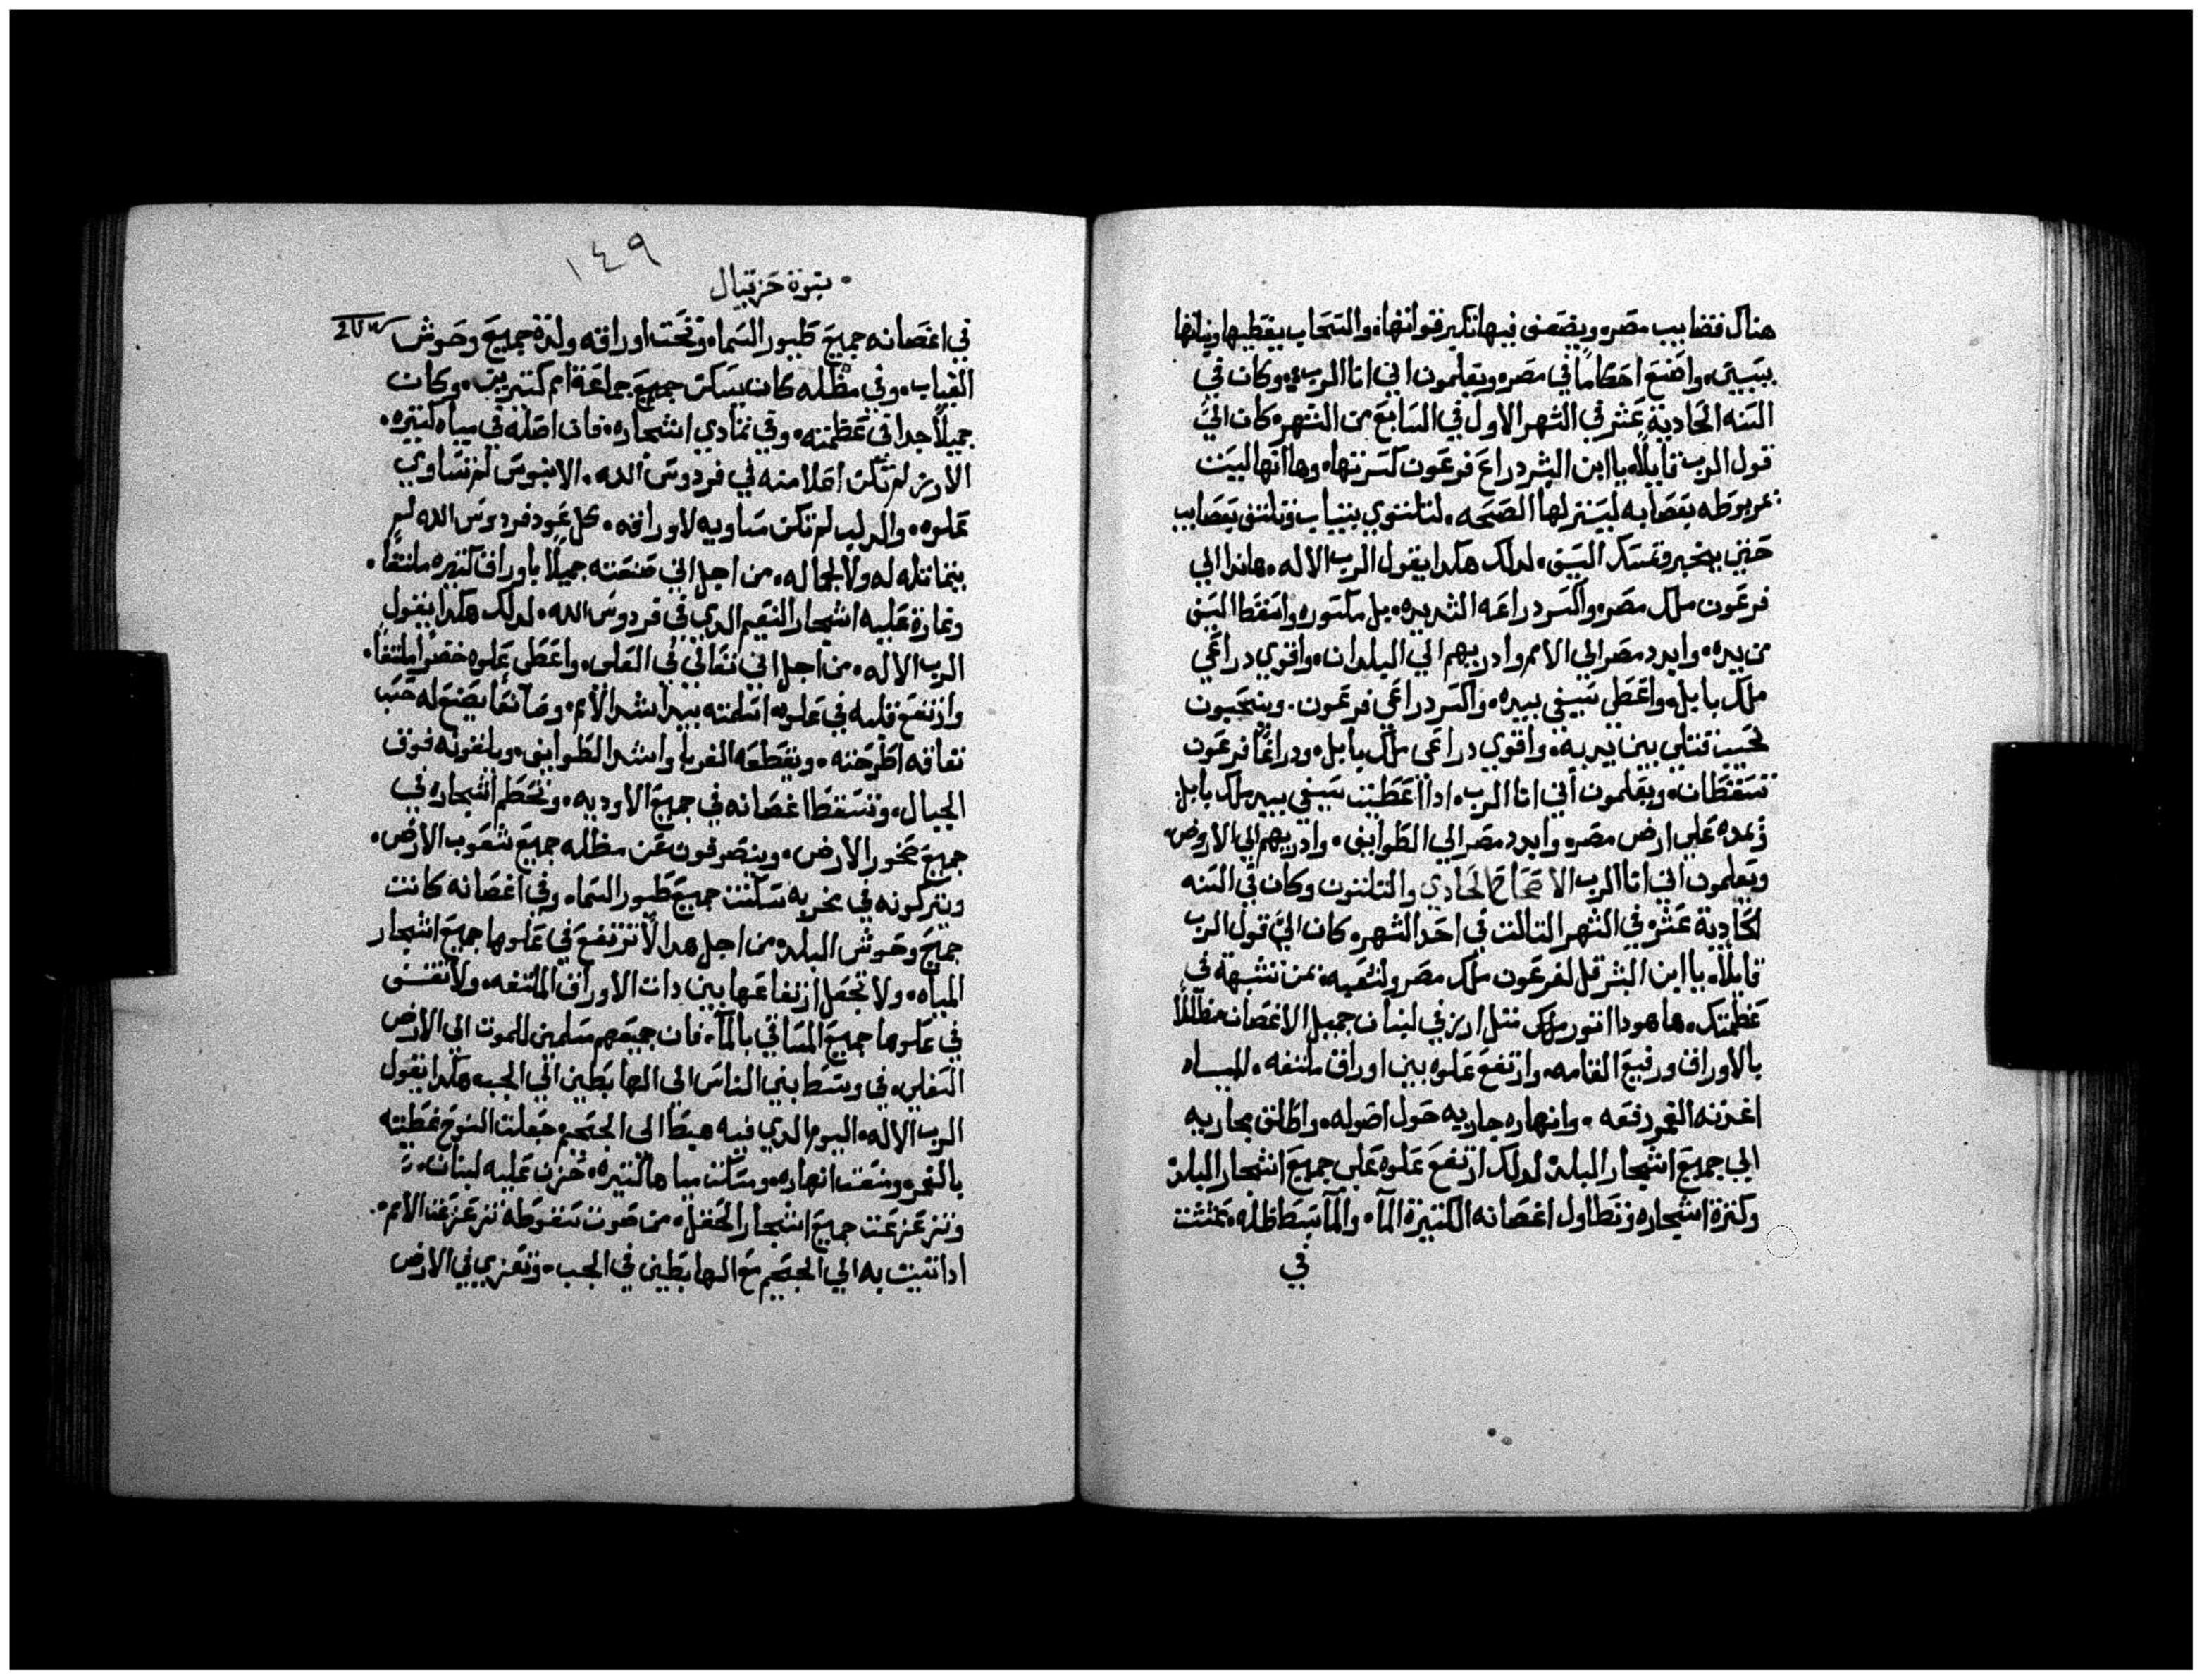 هناك قضايب مصر، ويضعف فيها تكبر قواتها، والسحاب يغطيها وبناتها
يتسبين، واصنع احكاماً في مصر، ويعلمون اني انا الرب، وكان في
السنه الحادية عشر في الشهر الاول في السابع من الشهر، كان اليّ
قول الرب قايلاً، يا ابن البشر دراع فرعون كسرتها، وها انها ليست
مربوطه بعصابه ليسترلها الصحه، لتلتوي بتياب وتلتف بعصايب
حتي بخبر وتمسك السيف، لدلك هكدا يقول الرب الاله، هاندا الي
فرعون ملك مصر، واكسر دراعه الشديده، بل مكسوره، واسقط السيف
من يده، وابدد مصر الي الامم وادريهم الي البلدان، واقوي دراعي
ملك بابل، واعطي سيفي بيده، واكسر دراعي فرعون، وينتحبون
نحيب قتلي بين يديه، واقوي دراعي ملك بابل، ودراعا فرعون
تسقطان، ويعلمون اني انا الرب، ادا اعطيت سيفي بيد ملك بابل
ومده علي ارض مصر، وابدد مصر الي الطوايف، وادريهم الي الاروض
ويعلمون اني انا الرب الاصحاح الحادي والتلتون وكان في السنه
الحادية عشره في الشهر التالت في احد الشهر، كان اليّ قول الرب
قايلاً، يا ابن البشر قل لفرعون ملك مصر ولشعبه، بمن تشبهة في
عظمتك، هاهودا اتور ملك متل ارز في لبنان جميل الاغصان مظللاً
بالاوراق ورفيع القامه، وارتفع علوه بين اوراق ملتفه، المياه
اغدته الغمر رفعه، وانهاره جاريه حول اصوله، واطلق مجاريه
الي جميع اشجار البلد، لدلك ارتفع علوه علي جميع اشجار البلد
وكترة اشجاره وتطاول اغصانه الكتيرة المآ، والمآ بسط ظله، عششت
في
١٤٩
نبوة حزقيال
في اغصانه جميع طيور السماء، وتحت اوراقه ولدة جميع وحوش
الغياب، وفي مظله كان يسكن جميع جماعة امم كتيرين، وكان
جميلاً جدا في عظمته، وفي تمادي اشجاره، فان اصله في مياه كتيره،
الارز لم تكن اعلا منه في فردوس الله، الابنوس لم تساوي
علوه، والدلب لم تكن مساويه لاوراقه، كل عود فردوس الله لم
يتماتله له ولا لجماله، من اجل اني صنعته جميلاً باوراق كتيره ملتفا،
وغارة عليه اشجار النعيم الدي في فردوس الله، لدلك هكدا يقول
الرب الاله، من اجل اني تعالي في العلي، واعطي علوه خضرا ملتفا،
وارتفع قلبه في علوه، اسلمته بيد اشد الامم، وصانعا يصنع له حسب
نفاقه اطرحته، ويقطعه الغربا واشد الطوايف، ويلقونه فوق
الجبال، وتسقط اغصانه في جميع الاوديه، وتحطم اشجاره في
جميع صخور الارض، وينصرفون عن مظله جميع شعوب الارض،
ويتركونه في خربه سكنت جميع طيور السماء، وفي اغصانه كانت
جميع وحوش البلد، من اجل هدا لا ترتفع في علوها جميع اشجار
المياه، ولا تجعل ارتفاعها بين دات الاوراق الملتفه، ولا تقف
في علوها جميع المساقي بالمآ، فان جميعهم مسلمين للموت الي الارض
السفلي، في وسط بني الناس الي الهابطين الي الجب، هكدا يقول
الرب الاله، اليوم الدي فيه هبط الي الجحيم جعلت النوح غطيته
بالغمر، ومنعت انهاره، ومسكت مياها كتيره، حزن عليه لبنان،
وتزعزعت جميع اشجار الحقل، من صوت سقوطه تزعزعت الامم،
ادا اتيت به الي الجحيم مع الهابطين في الجب، وتعزي في الارض